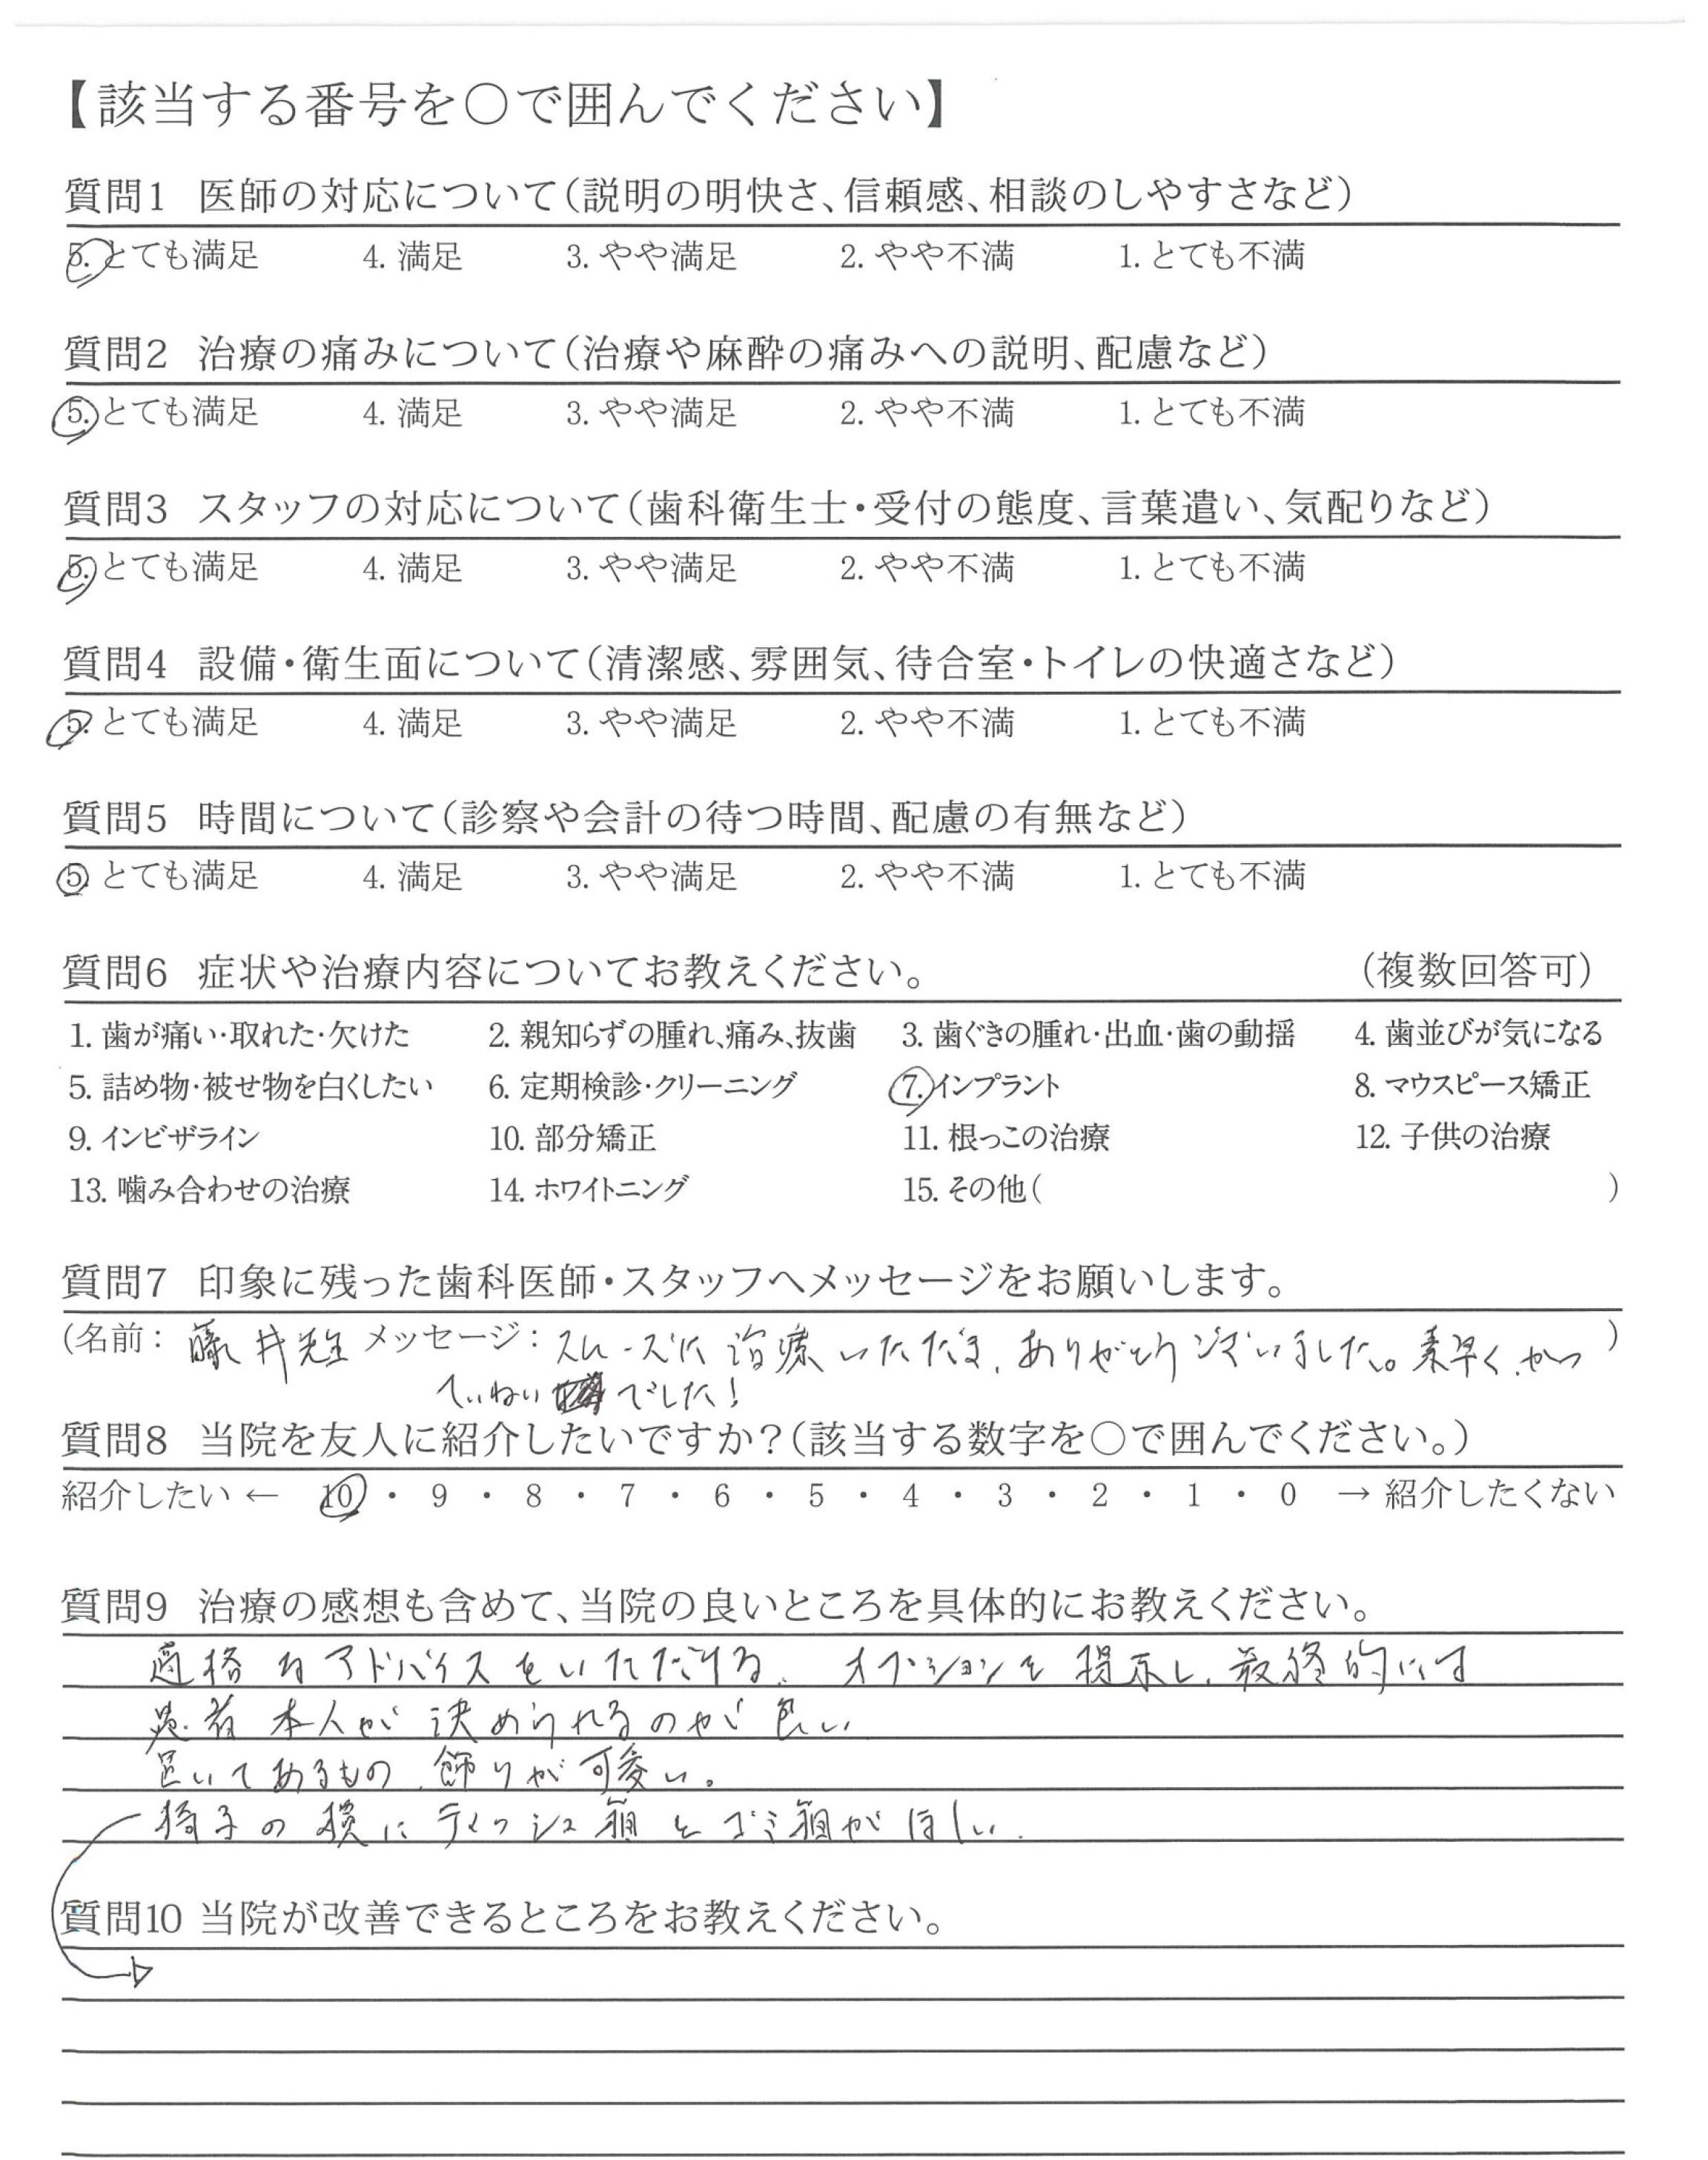 【該当する番号を○で囲んでください】
質問1 医師の対応について（説明の明快さ、信頼感、相談のしやすさなど）
5. とても満足 4. 満足 3. やや満足 2. やや不満 1. とても不満
質問2 治療の痛みについて（治療や麻酔の痛みへの説明、配慮など）
5. とても満足 4. 満足 3. やや満足 2. やや不満 1. とても不満
質問3 スタッフの対応について（歯科衛生士・受付の態度、言葉遣い、気配りなど）
5. とても満足 4. 満足 3. やや満足 2. やや不満 1. とても不満
質問4 設備・衛生面について（清潔感、雰囲気、待合室・トイレの快適さなど）
5. とても満足 4. 満足 3. やや満足 2. やや不満 1. とても不満
質問5 時間について（診察や会計の待つ時間、配慮の有無など）
5. とても満足 4. 満足 3. やや満足 2. やや不満 1. とても不満
質問6 症状や治療内容についてお教えください。 （複数回答可）
1. 歯が痛い・取れた・欠けた 2. 親知らずの腫れ、痛み、抜歯 3. 歯ぐきの腫れ・出血・歯の動揺 4. 歯並びが気になる
5. 詰め物・被せ物を白くしたい 6. 定期検診・クリーニング 7. インプラント 8. マウスピース矯正
9. インビザライン 10. 部分矯正 11. 根っこの治療 12. 子供の治療
13. 噛み合わせの治療 14. ホワイトニング 15. その他（ ）
質問7 印象に残った歯科医師・スタッフへメッセージをお願いします。
（名前： 藤井先生 メッセージ： スムーズに治療いただき、ありがとうございました。素早く、かつ ）
ていねいでした！
質問8 当院を友人に紹介したいですか？（該当する数字を○で囲んでください。）
紹介したい ← 10 ・ 9 ・ 8 ・ 7 ・ 6 ・ 5 ・ 4 ・ 3 ・ 2 ・ 1 ・ 0 → 紹介したくない
質問9 治療の感想も含めて、当院の良いところを具体的にお教えください。
適格なアドバイスをいただける。オプションを提示し、最終的には
患者本人が決められるのが良い
置いてあるもの、飾りが可愛い。
椅子の横にティッシュ箱とゴミ箱がほしい。
質問10 当院が改善できるところをお教えください。